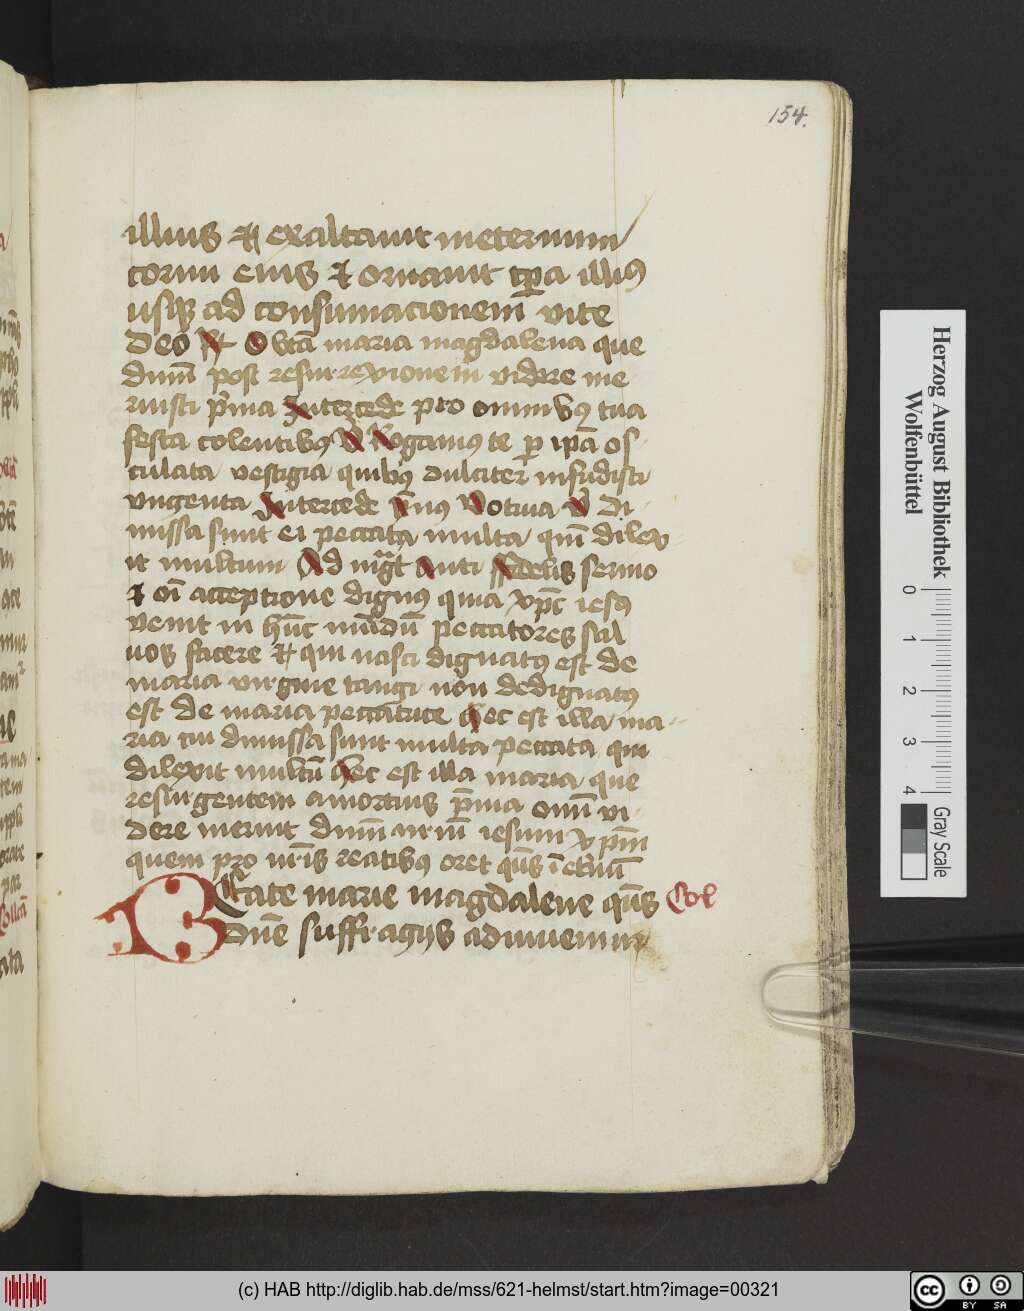 154.
illius et exaltauit in eternum
cornu eius et ornauit tp̄a illius
usq; ad consumacionem̄ vite
Deo O bt̄a maria magdalena que
dnm̄ post resurrexionem videre me
ruisti p̄ma Intercede pro omnibus tua
festa colentibus V̄ Rogamus te p ip̄a os
culata vestigia quibus dulciter infudisti
vngenta Intercede Votiua V̄ Di
missa sunt ei peccata multa qm̄ dilex
it multum Ad Fidelis sermo
et oī acceptione dignus quia xp̄c iesus
venit in hūc mūdū peccatores sal
uos facere et qui nasci dignatus est de
maria virgine tangi non dedignatus
est de maria peccatrice hec est illa ma
ria cui dimissa sunt multa peccata qui
dilexit multū hec est illa maria que
resurgentem amortuis p̄ma omī vi
dere meruit dnm̄ nr̄m iesum xp̄m
quem pro nr̄is reatibus oret qūs ī etnū
Beate marie magdalene qūs Col
Dnē suffragiis adiuuemur
Herzog August Bibliothek
Wolfenbüttel
0 1 2 3 4
Gray Scale
(c) HAB http://diglib.hab.de/mss/621-helmst/start.htm?image=00321
cc BY SA